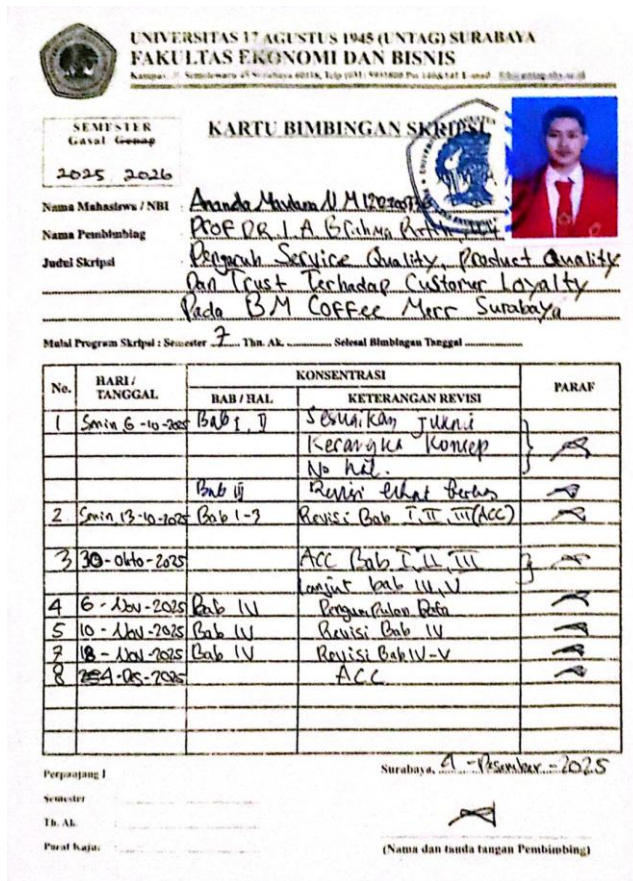 UNIVERSITAS 17 AGUSTUS 1945 (UNTAG) SURABAYA
FAKULTAS EKONOMI DAN BISNIS
Kampus: Jl. Semolowaru 45 Surabaya 60118, Telp (031) 5931800
SEMESTER
Gasal Genap
2025 2026
KARTU BIMBINGAN SKRIPSI
Nama Mahasiswa / NBI : Ananda Maulana
Nama Pembimbing : PROF DR. I. A. B
Judul Skripsi : Pengaruh Service Quality, Product Quality
Dan Trust Terhadap Customer Loyalty
Pada BM Coffee Merr Surabaya
Mulai Program Skripsi : Semester 7 Thn. Ak. Selesai Bimbingan Tanggal
No. HARI / TANGGAL KONSENTRASI PARAF
BAB / HAL KETERANGAN REVISI
1 Senin 6-10-2025 Bab I, II Sesuaikan
Kerangka Konsep
No hal.
Bab III Revisi lihat berkas
2 Senin, 13-10-2025 Bab 1-3 Revisi Bab I, II, III (ACC)
3 30-Okto-2025 ACC Bab I, II, III
lanjut bab IV, V
4 6-Nov-2025 Bab IV Pengumpulan Data
5 10-Nov-2025 Bab IV Revisi Bab IV
7 18-Nov-2025 Bab IV Revisi Bab IV-V
8 4-Des-2025 ACC
Perpanjang I
Surabaya, 4-Desember-2025
Semester
Th. Ak.
Paraf Kaju.
(Nama dan tanda tangan Pembimbing)